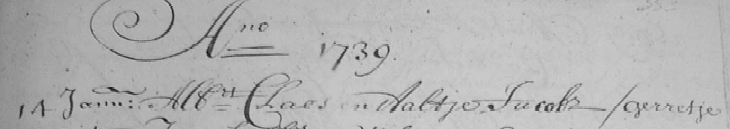 Ano 1739.
14 Janu: Albrt Claes en Aaltje Jacobs / Gerretje